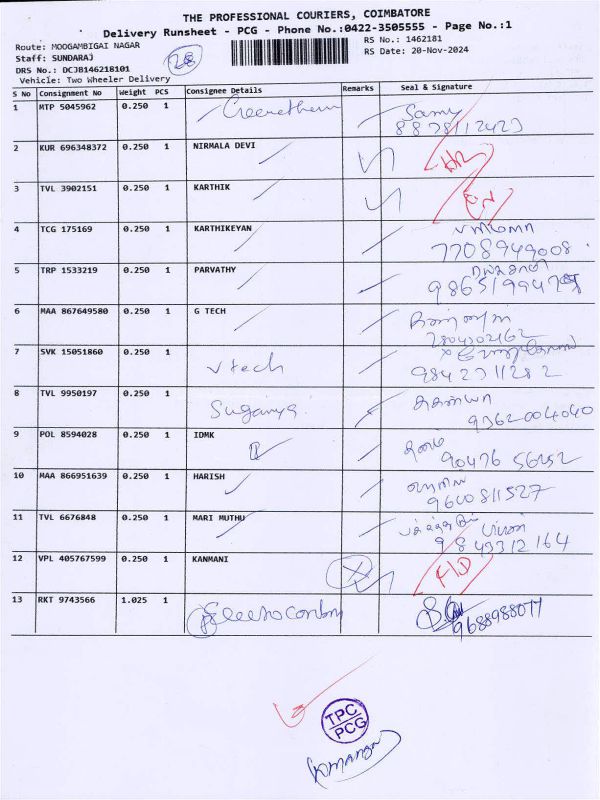 THE PROFESSIONAL COURIERS, COIMBATORE
Delivery Runsheet - PCG - Phone No.:0422-3505555 - Page No.:1
Route: MOOGAMBIGAI NAGAR RS No.: 1462181
Staff: SUNDARAJ 28 RS Date: 20-Nov-2024
DRS No.: DCJB146218101
Vehicle: Two Wheeler Delivery
S No Consignment No Weight PCS Consignee Details Remarks Seal & Signature
1 MTP 5045962 0.250 1 Samy
8878112423
2 KUR 696348372 0.250 1 NIRMALA DEVI
3 TVL 3902151 0.250 1 KARTHIK
4 TCG 175169 0.250 1 KARTHIKEYAN
7708949008
5 TRP 1533219 0.250 1 PARVATHY
6 MAA 867649580 0.250 1 G TECH
7 SVK 15051860 0.250 1 Vtech
9842311282
8 TVL 9950197 0.250 1 Suganya
9362004040
9 POL 8594028 0.250 1 IDMK
90476 56252
10 MAA 866951639 0.250 1 HARISH
9600811527
11 TVL 6676848 0.250 1 MARI MUTHU
9843312164
12 VPL 405767599 0.250 1 KANMANI
13 RKT 9743566 1.025 1
9688988077
TPC
PCG